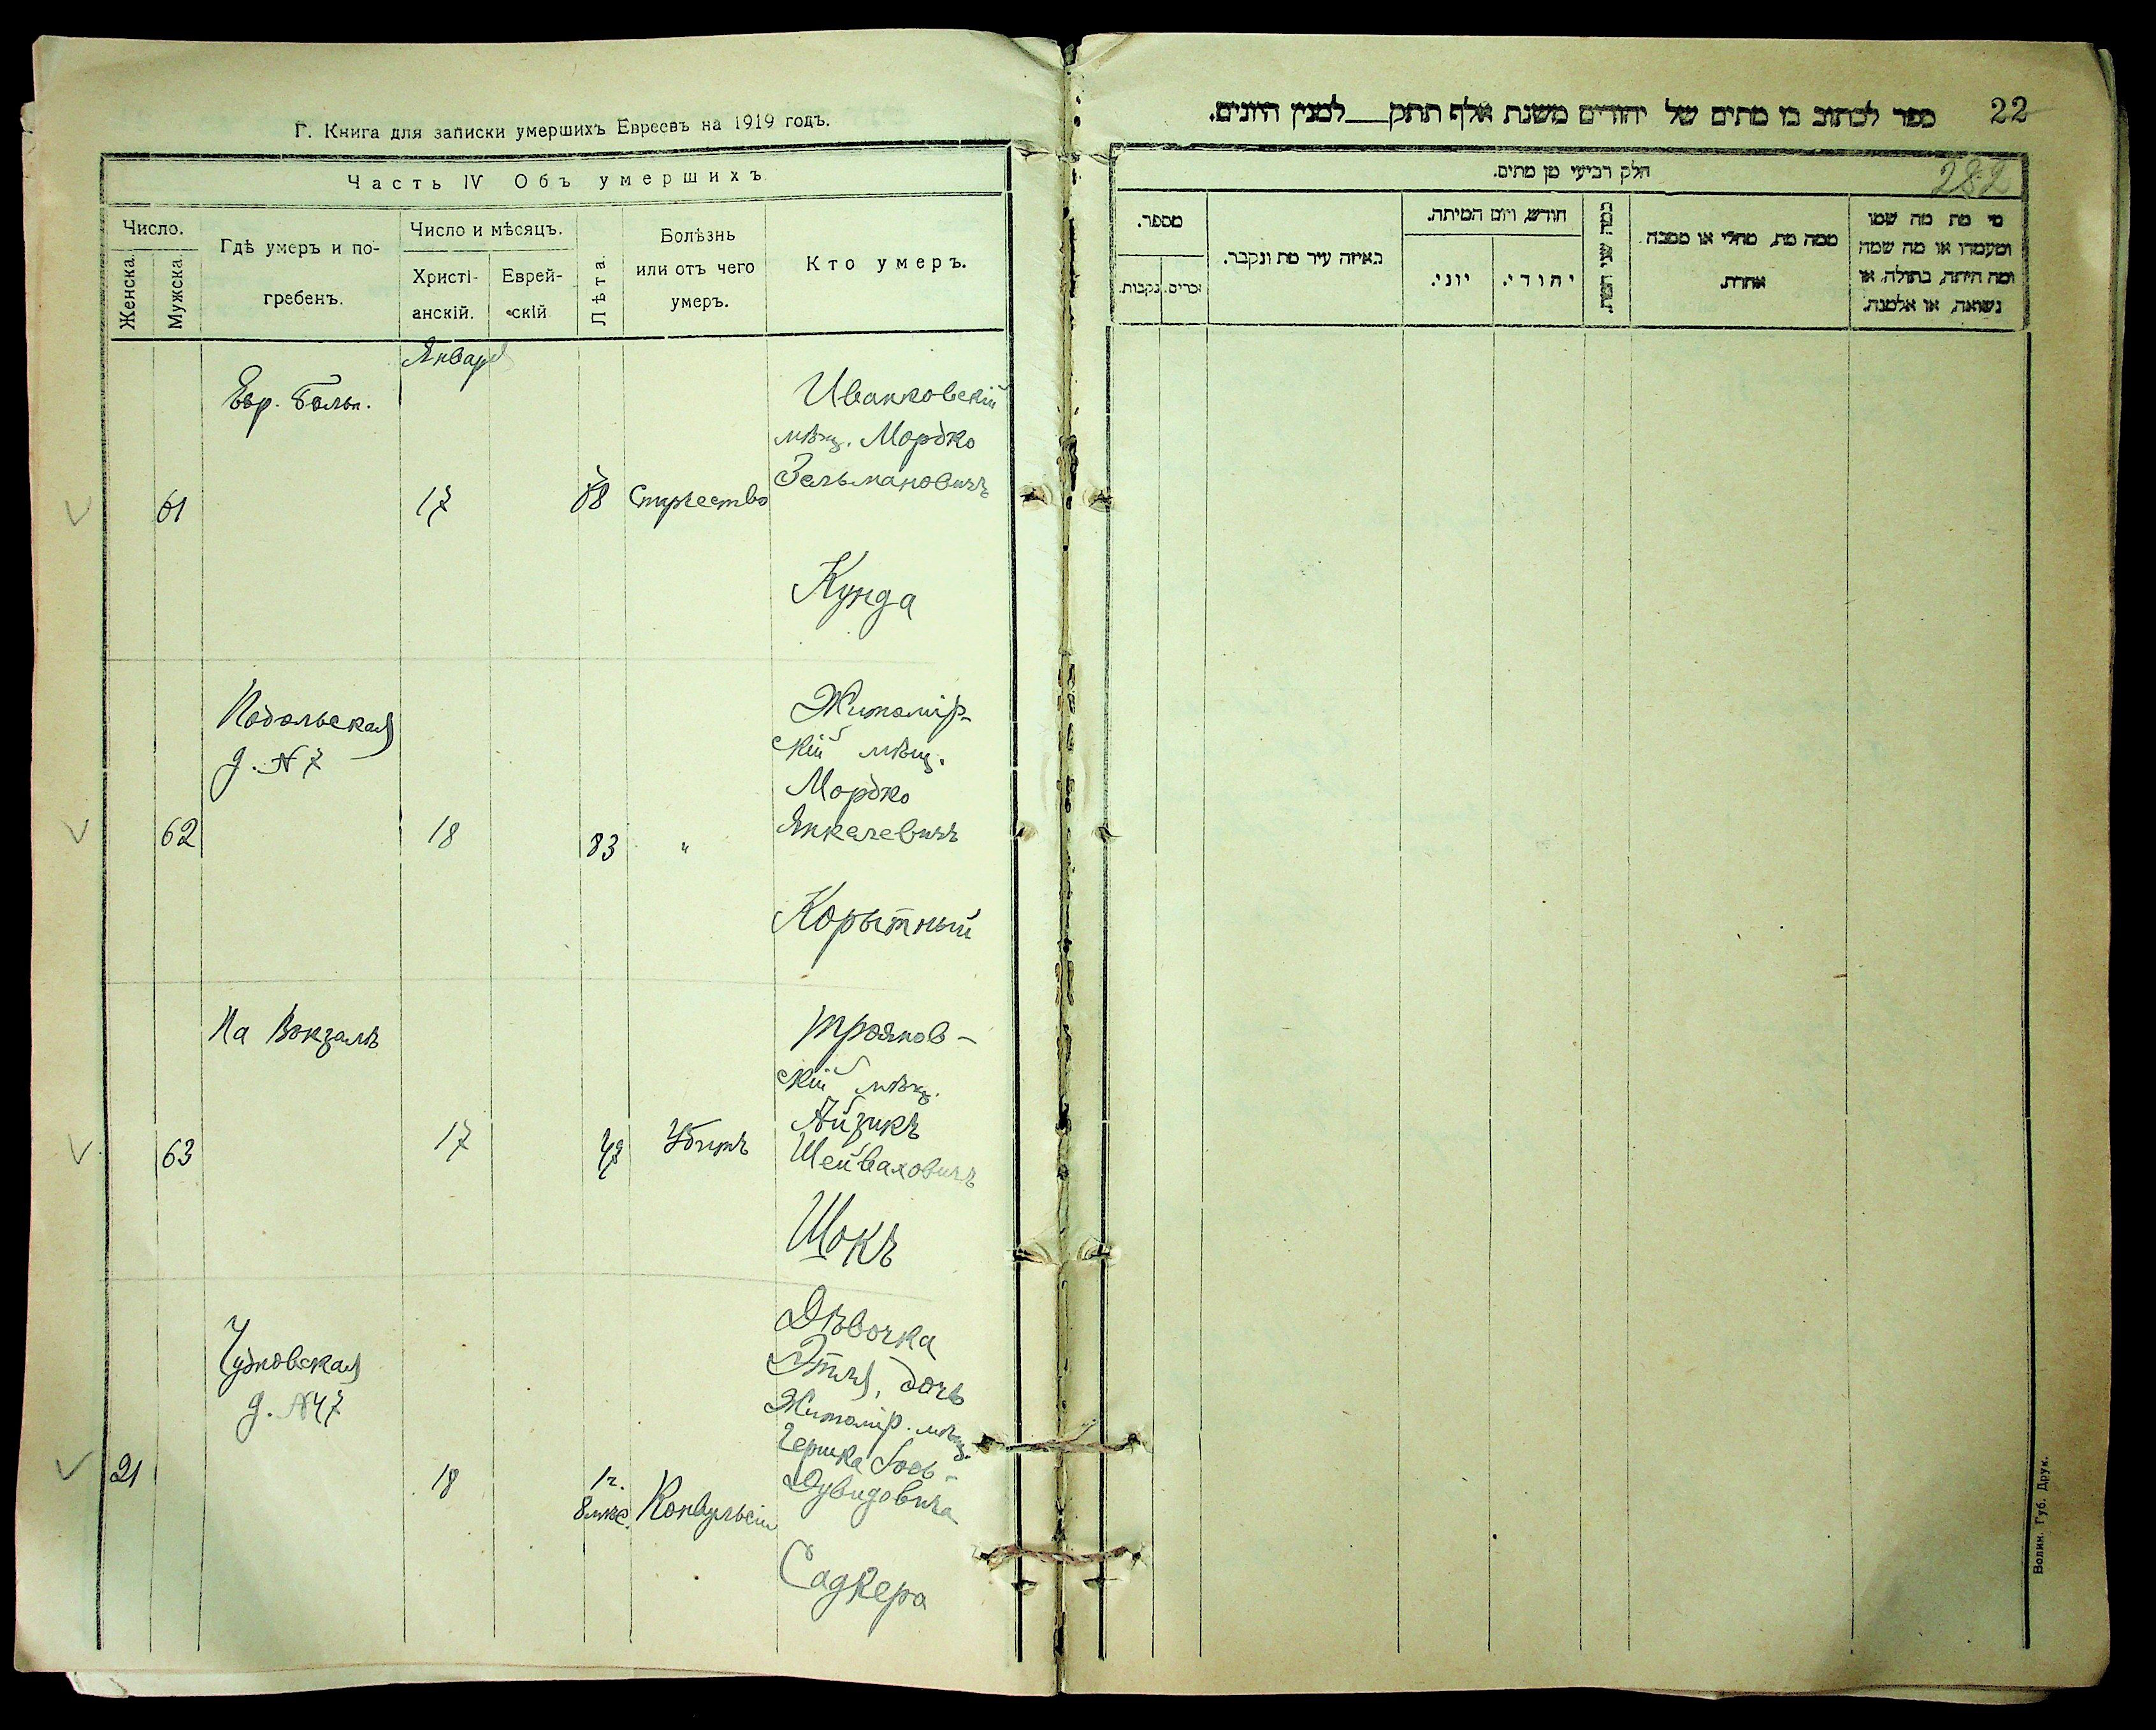 Г. Книга для записки умершихъ Евреевъ на 1919 годъ.
Часть IV Объ умершихъ
Число.
Женска.
Мужска.
Гдѣ умеръ и по-
гребенъ.
Число и мѣсяцъ.
Христі-
анскій.
Еврей-
скій
Лѣта.
Болѣзнь
или отъ чего
умеръ.
Кто умеръ.
Января
Евр. Больн.
61
17
Старчество
Иванковскій
мѣщ. Мордко
Зельмановичъ
Кунда
Подольская
д. № 7
62
18
83
"
Житомір-
скій мѣщ.
Мордко
Янкелевичъ
Корытный
На Вокзалѣ
63
17
Убитъ
Трояновскій
скій мѣщ.
Айзикъ
Шейваховичъ
Шокъ
Чудновская
д. № 47
21
18
1 г.
8 мѣс.
Конвульсіи
Дѣвочка
Этля, дочь
Житомір. мѣщ.
Гершка Іось-
Дувидовича
Садкера
22
ספר לכתוב בו מתים של יהודים משנת אלף תתק__למנין היונים.
282
חלק רביעי מן מתים.
מספר.
נקבות.
זכרים.
באיזה עיר מת ונקבר.
חודש, ויום המיתה.
יוני.
יהודי.
כמה שני המת.
ממה מת, מחלי או מסבה
אחרת.
מי מת מה שמו
ומעמדו או מה שמה
ומה היתה, בתולה, או
נשואה, או אלמנה.
Волин. Губ. Друк.